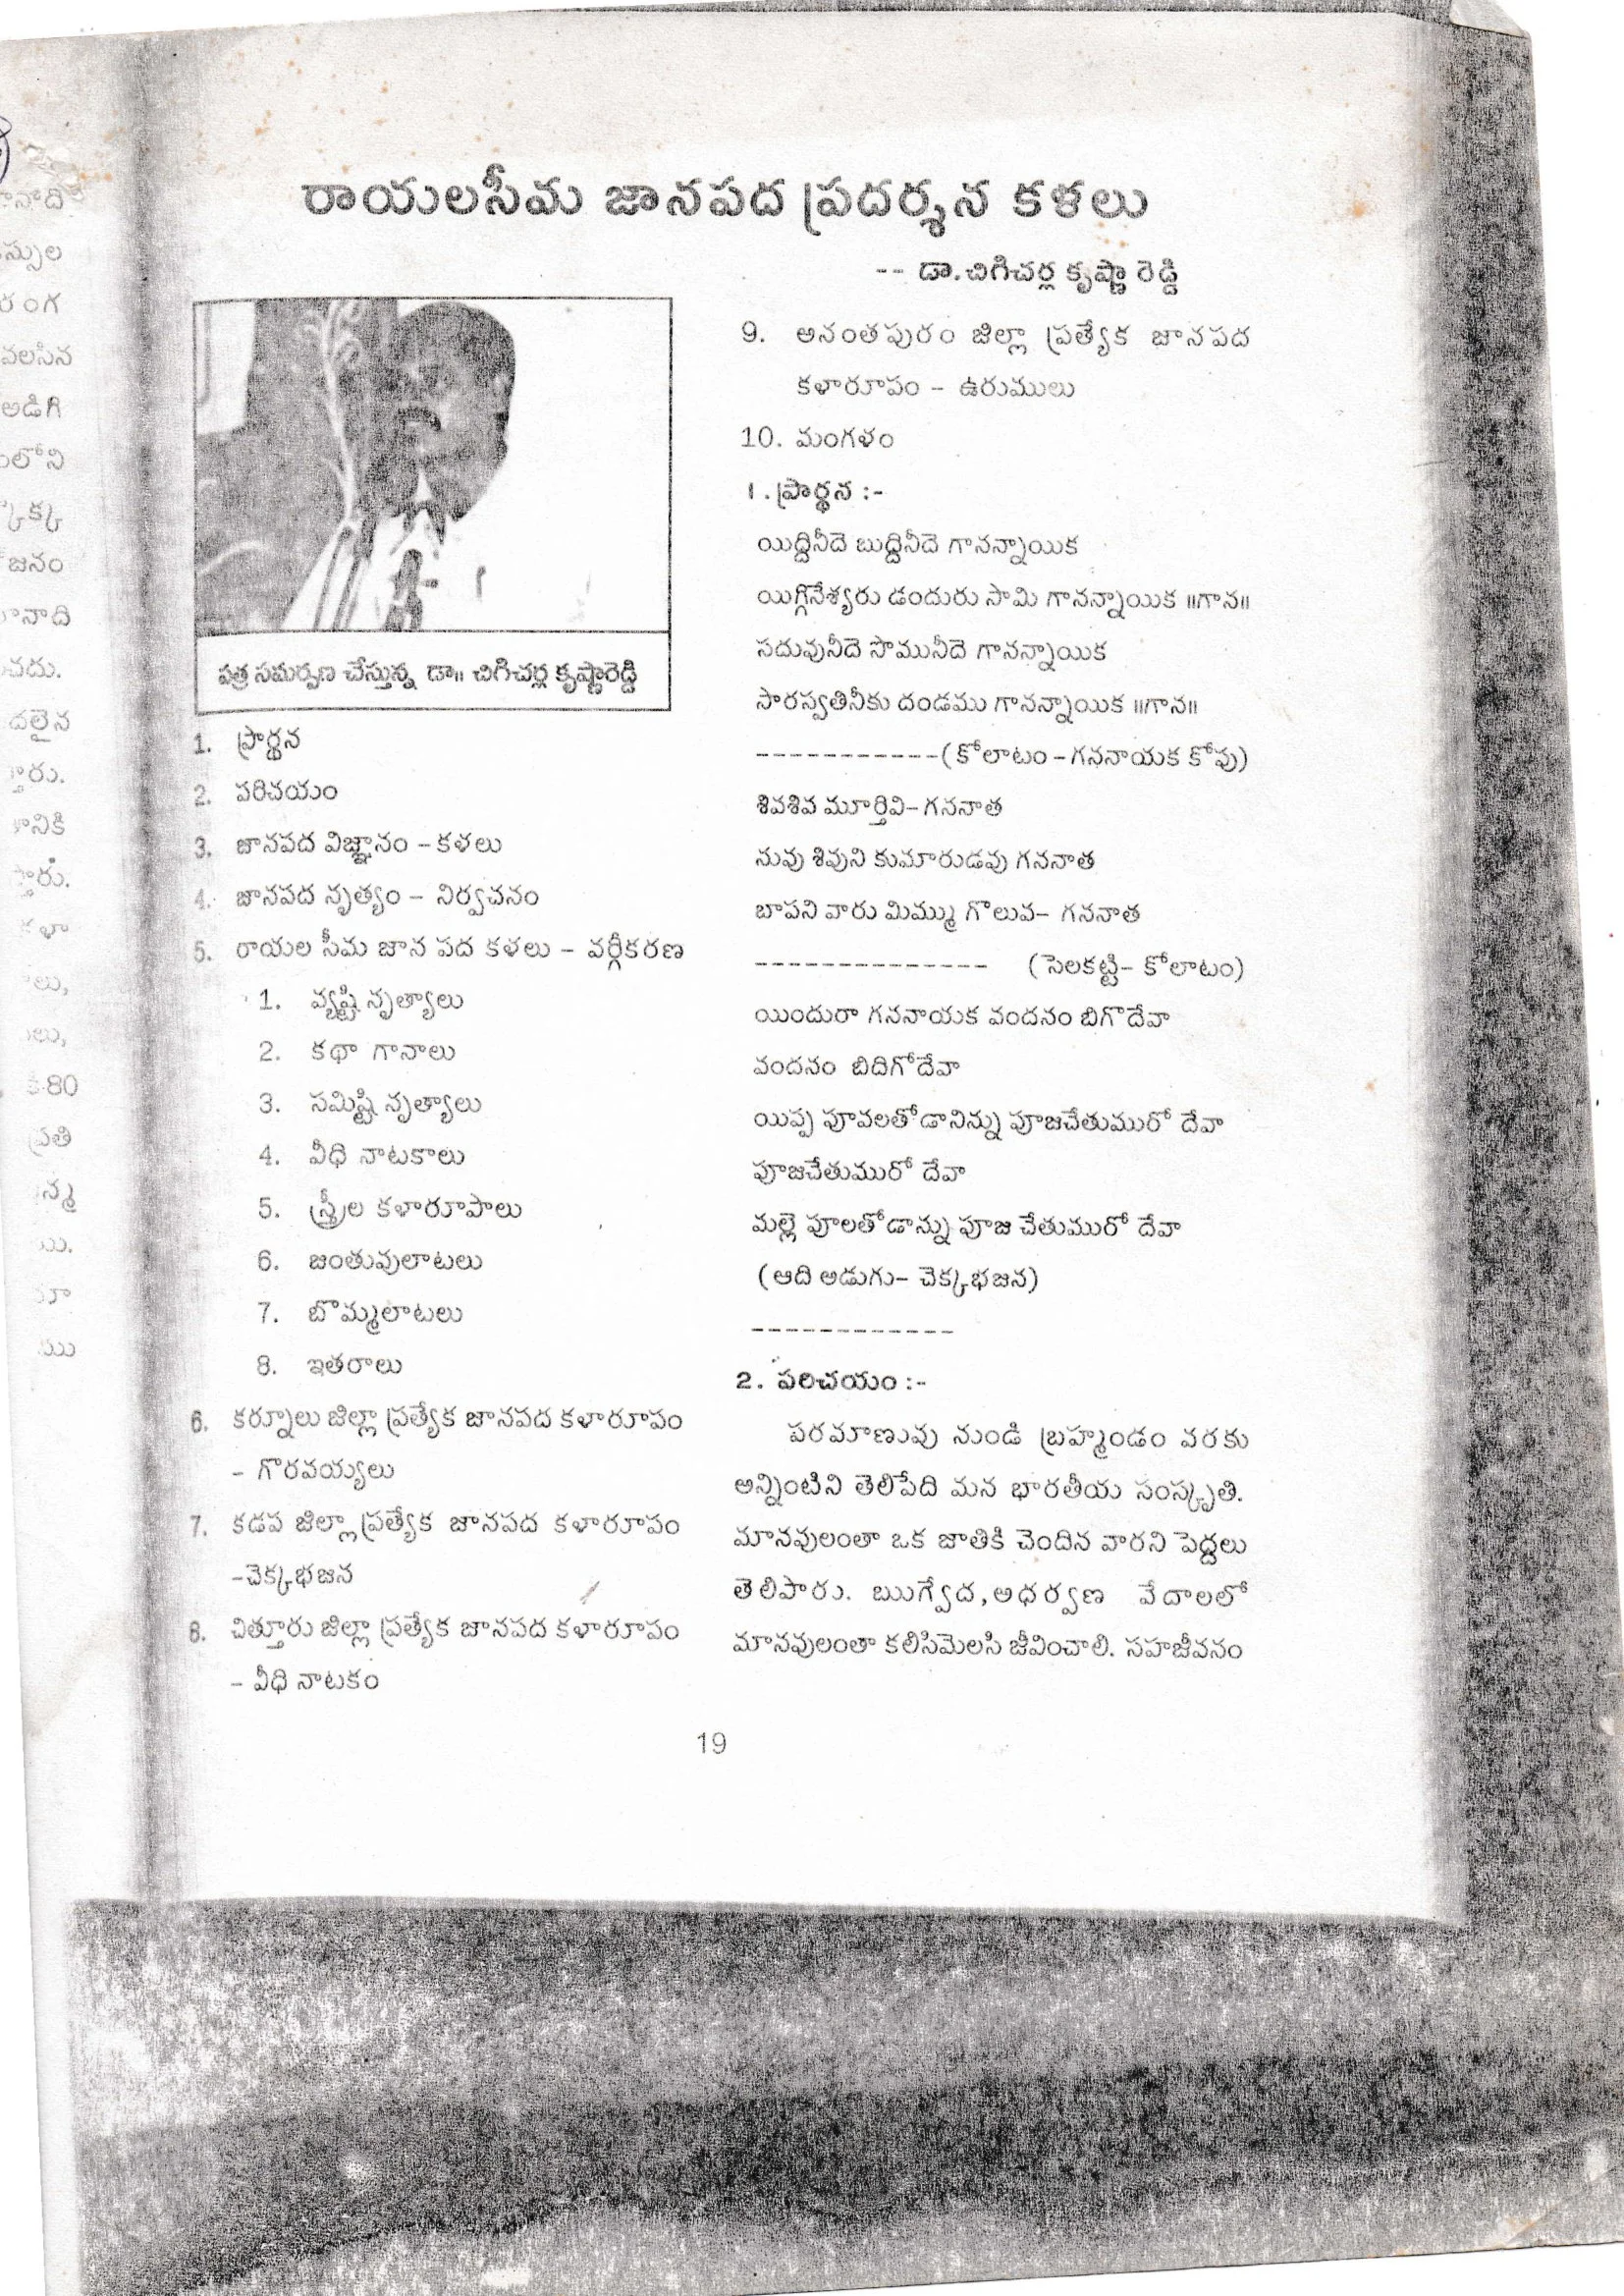 రాయలసీమ జానపద ప్రదర్శన కళలు
-- డా.చిగిచర్ల కృష్ణా రెడ్డి
పత్ర సమర్పణ చేస్తున్న డా॥ చిగిచర్ల కృష్ణారెడ్డి
1. ప్రార్థన
2. పరిచయం
3. జానపద విజ్ఞానం - కళలు
4. జానపద నృత్యం - నిర్వచనం
5. రాయల సీమ జాన పద కళలు - వర్గీకరణ
1. వ్యష్టి నృత్యాలు
2. కథా గానాలు
3. సమిష్టి నృత్యాలు
4. వీధి నాటకాలు
5. స్త్రీల కళారూపాలు
6. జంతువులాటలు
7. బొమ్మలాటలు
8. ఇతరాలు
6. కర్నూలు జిల్లా ప్రత్యేక జానపద కళారూపం
- గొరవయ్యలు
7. కడప జిల్లా ప్రత్యేక జానపద కళారూపం
-చెక్కభజన
8. చిత్తూరు జిల్లా ప్రత్యేక జానపద కళారూపం
- వీధి నాటకం
9. అనంతపురం జిల్లా ప్రత్యేక జానపద
కళారూపం - ఉరుములు
10. మంగళం
1. ప్రార్థన :-
యిద్దినీదె బుద్దినీదె గానన్నాయిక
యిగ్గినేశ్వరు డందురు సామి గానన్నాయిక ॥గాన॥
సదువునీదె సొమునీదె గానన్నాయిక
సారస్వతినీకు దండము గానన్నాయిక ॥గాన॥
-----------(కోలాటం-గననాయక కోపు)
శివశివ మూర్తివి- గననాత
నువు శివుని కుమారుడవు గననాత
బాపని వారు మిమ్ము గొలువ- గననాత
-------------- (సెలకట్టి- కోలాటం)
యిందురా గననాయక వందనం బిగొదేవా
వందనం బిదిగోదేవా
యిప్ప పూవలతోడానిన్ను పూజచేతుమురో దేవా
పూజచేతుమురో దేవా
మల్లె పూలతోడాన్ను పూజ చేతుమురో దేవా
(ఆది అడుగు- చెక్కభజన)
------------
2. పరిచయం :-
పరమాణువు నుండి బ్రహ్మండం వరకు
అన్నింటిని తెలిపేది మన భారతీయ సంస్కృతి.
మానవులంతా ఒక జాతికి చెందిన వారని పెద్దలు
తెలిపారు. ఋగ్వేద,అధర్వణ వేదాలలో
మానవులంతా కలిసిమెలసి జీవించాలి. సహజీవనం
19